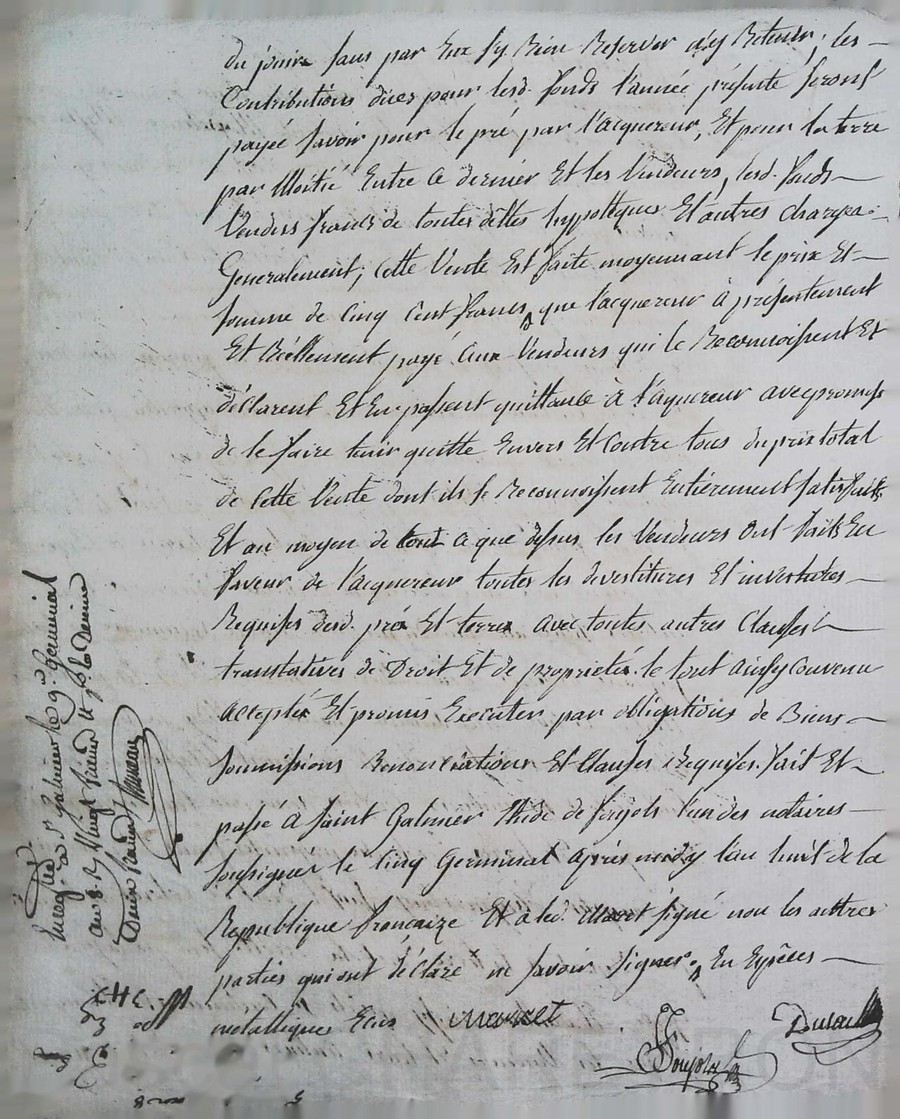 du jouir sans par Eux s'y Rien Reserver n'y Retenir, les
Contributions dües pour lesd. fonds l'année présente seront
payée savoir pour le pré par l'acquereur, Et pour la terre
par Moitié Entre ce dernier Et les Vendeurs, lesd. fonds
Vendus francs de toutes dettes hypoteques Et autres charges
Generalement; Cette Vente Est faite moyennant le prix Et
somme de Cinq Cent francs, que l'acquereur à présentement
Et Réellement payé aux Vendeurs qui le Reconnoissent Et
déClarent Et En passent quittance à l'aquereur avec promesse
de le faire tenir quitte Envers Et Contre tous du prix total
de Cette Vente dont ils se Reconnoissent Entièrement satisfaits
Et au moyen de tout ce que dessus les Vendeurs Ont faits En
faveur de l'acquereur toutes les devestitures Et investitures
Requises desd. prés Et terres avec toutes autres Clauses
translatives de Droit Et de proprieté. le tout ainsy Convenu
accepté Et promis Executer par obligations de Biens
soumissions Renonciations Et Clauses Requises. fait Et
passé à saint Galmier Etude de foujols l'un des notaires
soussignés le Cinq Germinal après midy l'an huit de la
Republique françaize Et a led. signé non les autres
parties qui ont déClaré ne savoir signer, En Espèces
métalliques
Enregtré à St Galmier le 9 Germinal
an 8. R